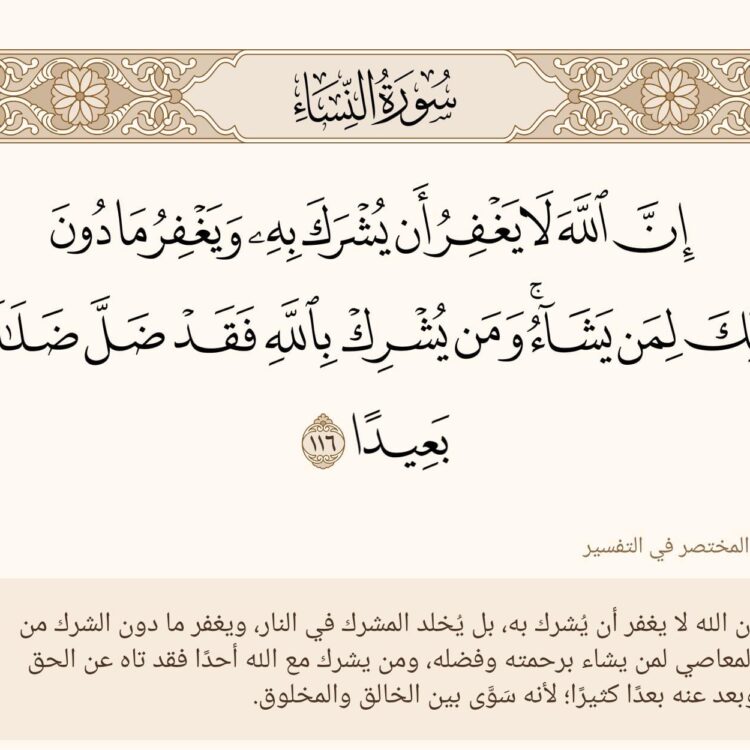 سُورَةُ النِّسَاءِ
إِنَّ ٱللَّهَ لَا يَغۡفِرُ أَن يُشۡرَكَ بِهِۦ وَيَغۡفِرُ مَا دُونَ
لِمَن يَشَآءُۚ وَمَن يُشۡرِكۡ بِٱللَّهِ فَقَدۡ ضَلَّ
بَعِيدًا ١١٦
المختصر في التفسير
الله لا يغفر أن يُشرك به، بل يُخلد المشرك في النار، ويغفر ما دون الشرك من
لمعاصي لمن يشاء برحمته وفضله، ومن يشرك مع الله أحدًا فقد تاه عن الحق
وبعد عنه بعدًا كثيرًا؛ لأنه سَوَّى بين الخالق والمخلوق.